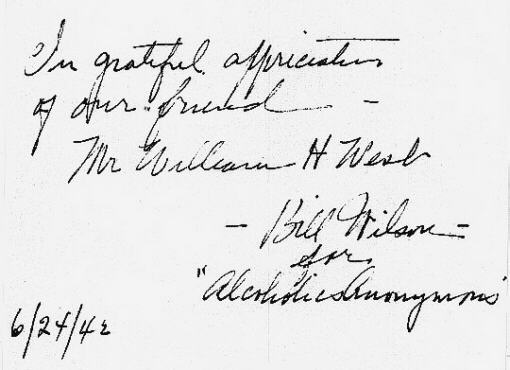 In grateful appriciation
of our friend —
Mr William H West
— Bill Wilson —
for
"Alcoholics Anonymous"
6/24/42